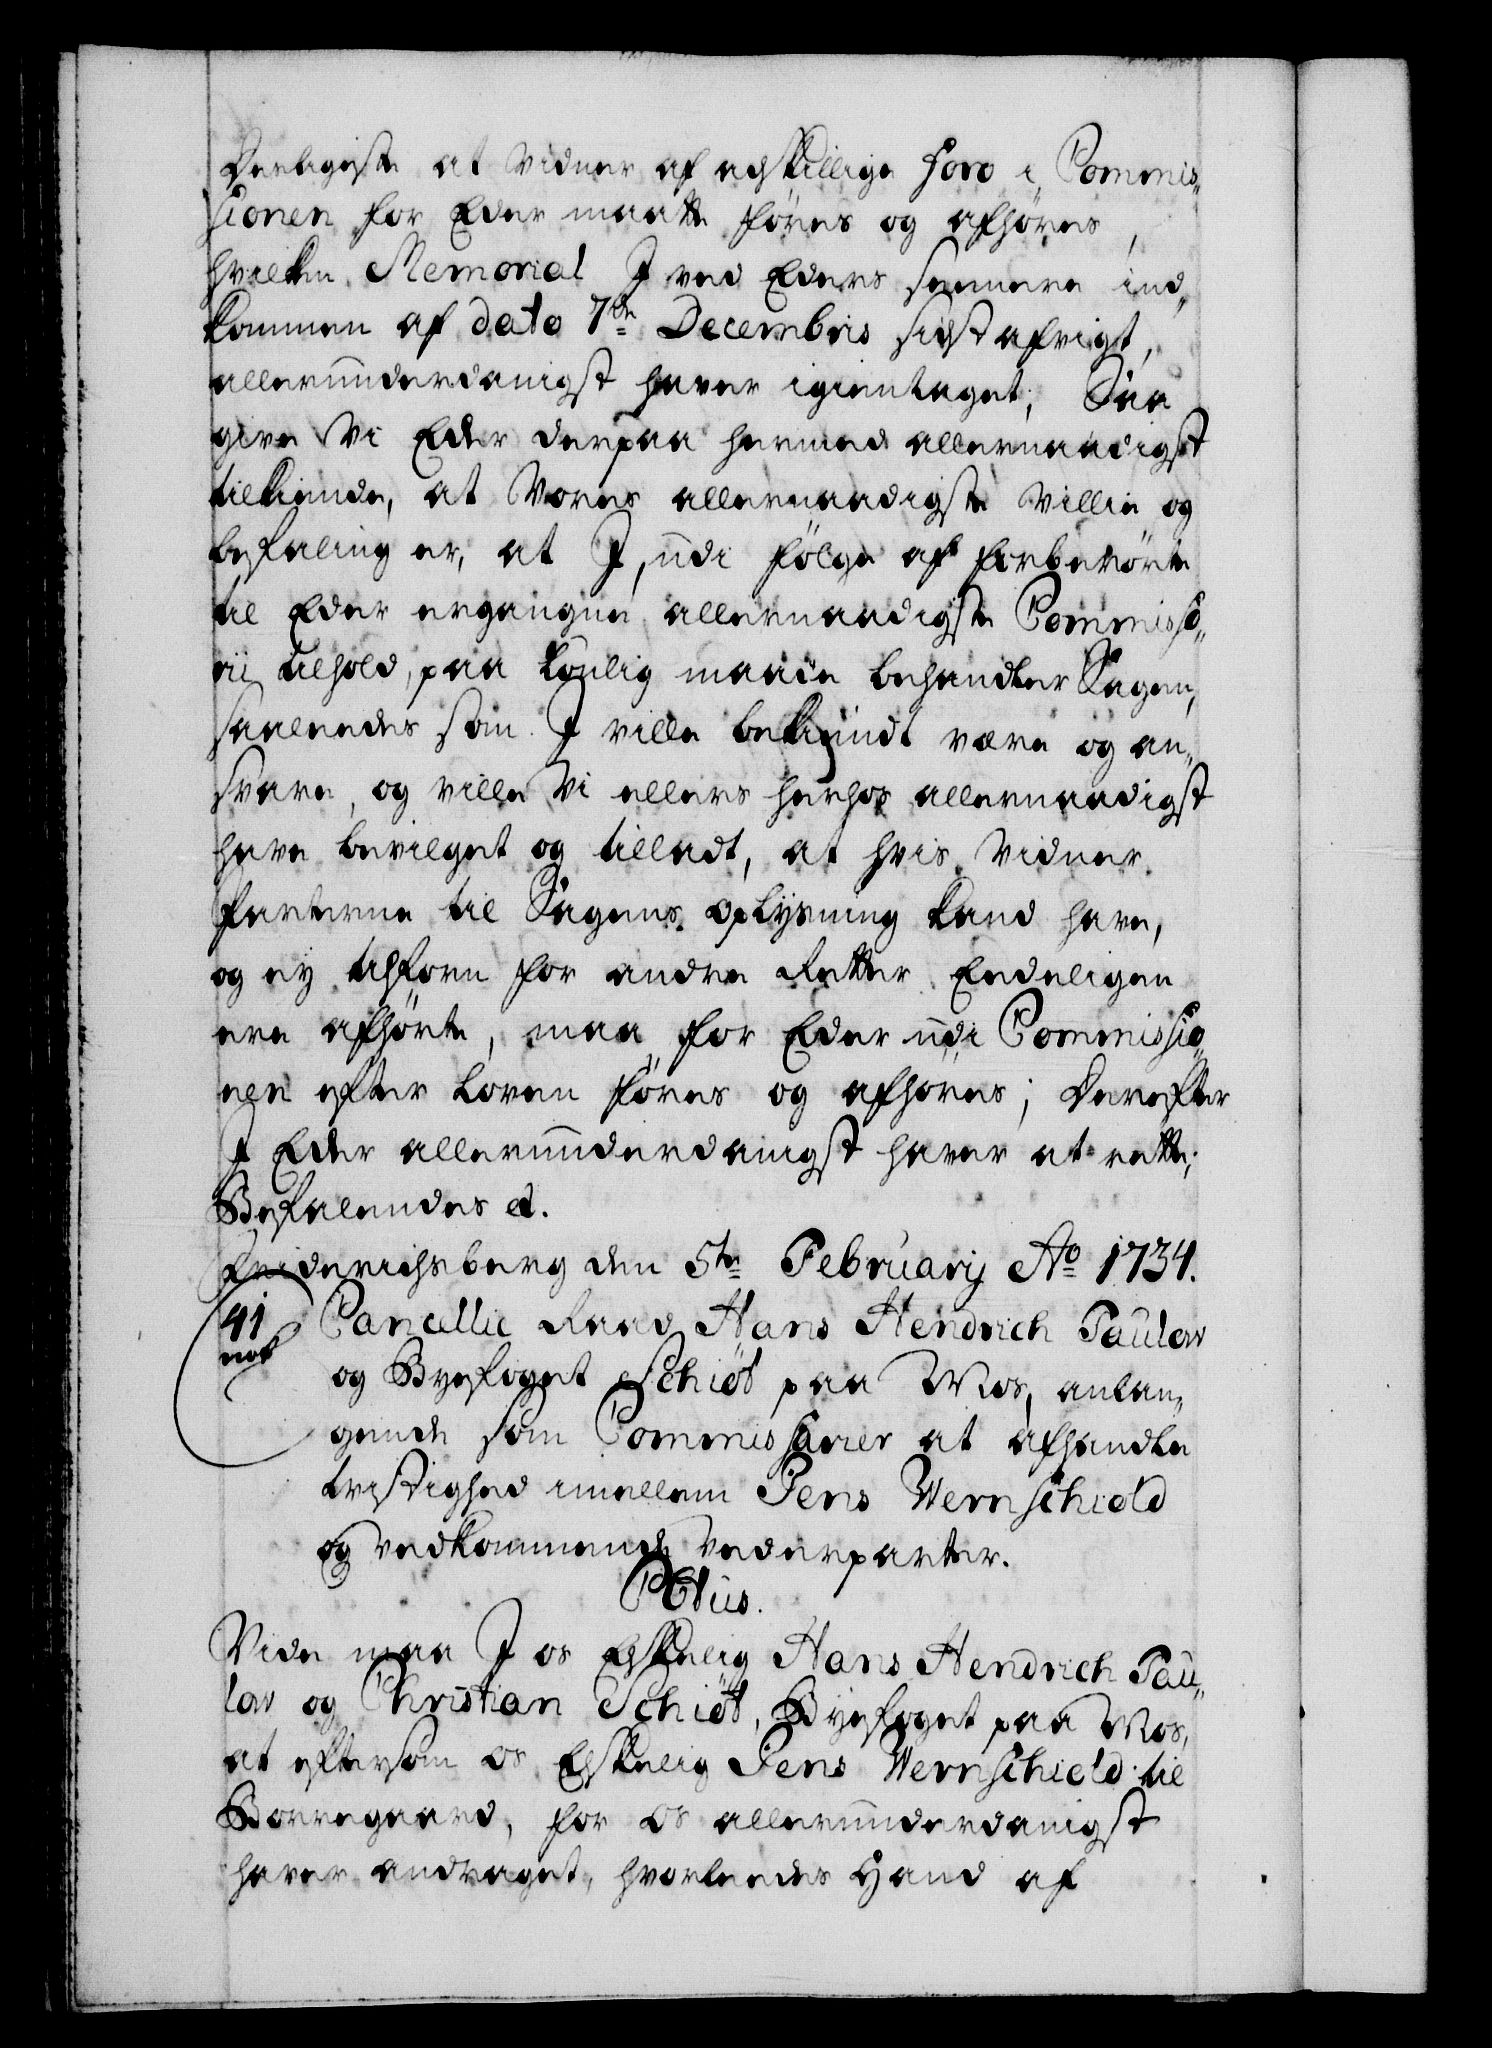 Deeligste at Vidner af adskillige foro i Commis„
sionen for Eder maatte föres og afhöres,
hvilken Memorial I ved Eders sennere ind„
kommen af dato 7de Decembris sidstafvigt,
allerunderdanigst haver igientaget; Saa
give Vi Eder derpaa hermed allernaadigst
tilkiende, at Vores allernaadigste Villie og
befaling er, at I, udi fölge af forberörte
til Eder ergangne allernaadigste Commisso„
rii tilhold, paa lovlig maade behandler Sagen,
saaleedes som I ville bekiendt være og an„
svare, og ville Vi ellers herhos allernaadigst
have bevilget og tilladt, at hvis Vidner
Parterne til Sagens Oplysning kand have,
og ey tilforn for andre Retter Endeligen
ere afhörte, maa for Eder udi Commissio„
nen efter Loven föres og afhöres; Derefter
I Eder allerunderdanigst haver at rette;
Befalendes etc.
Friderichsberg den 5te Februarij Ao 1734.
41
not
Cancellie Raad Hans Hendrich Paulow
og Byefoget Schiöt paa Mos, anlan„
gende som Commissarier at afhandle
tvistighed imellem Jens Wernschiold
og vedkommende vederparter.
C6tus.
Vide maa I os Elskelig Hans Hendrich Pau„
low og Christian Schiöt, Byefoget paa Mos,
at eftersom os Elskelig Jens Wernschield til
Borregaard, for os allerunderdanigst
haver andraget, hvorleedes Hand af